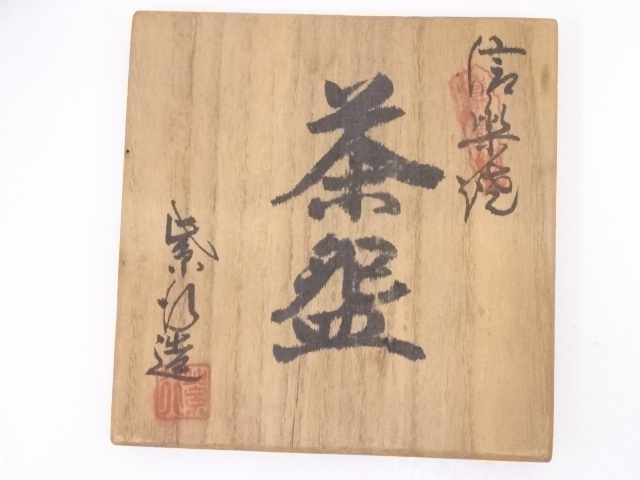 信楽焼
茶盌
紫香造